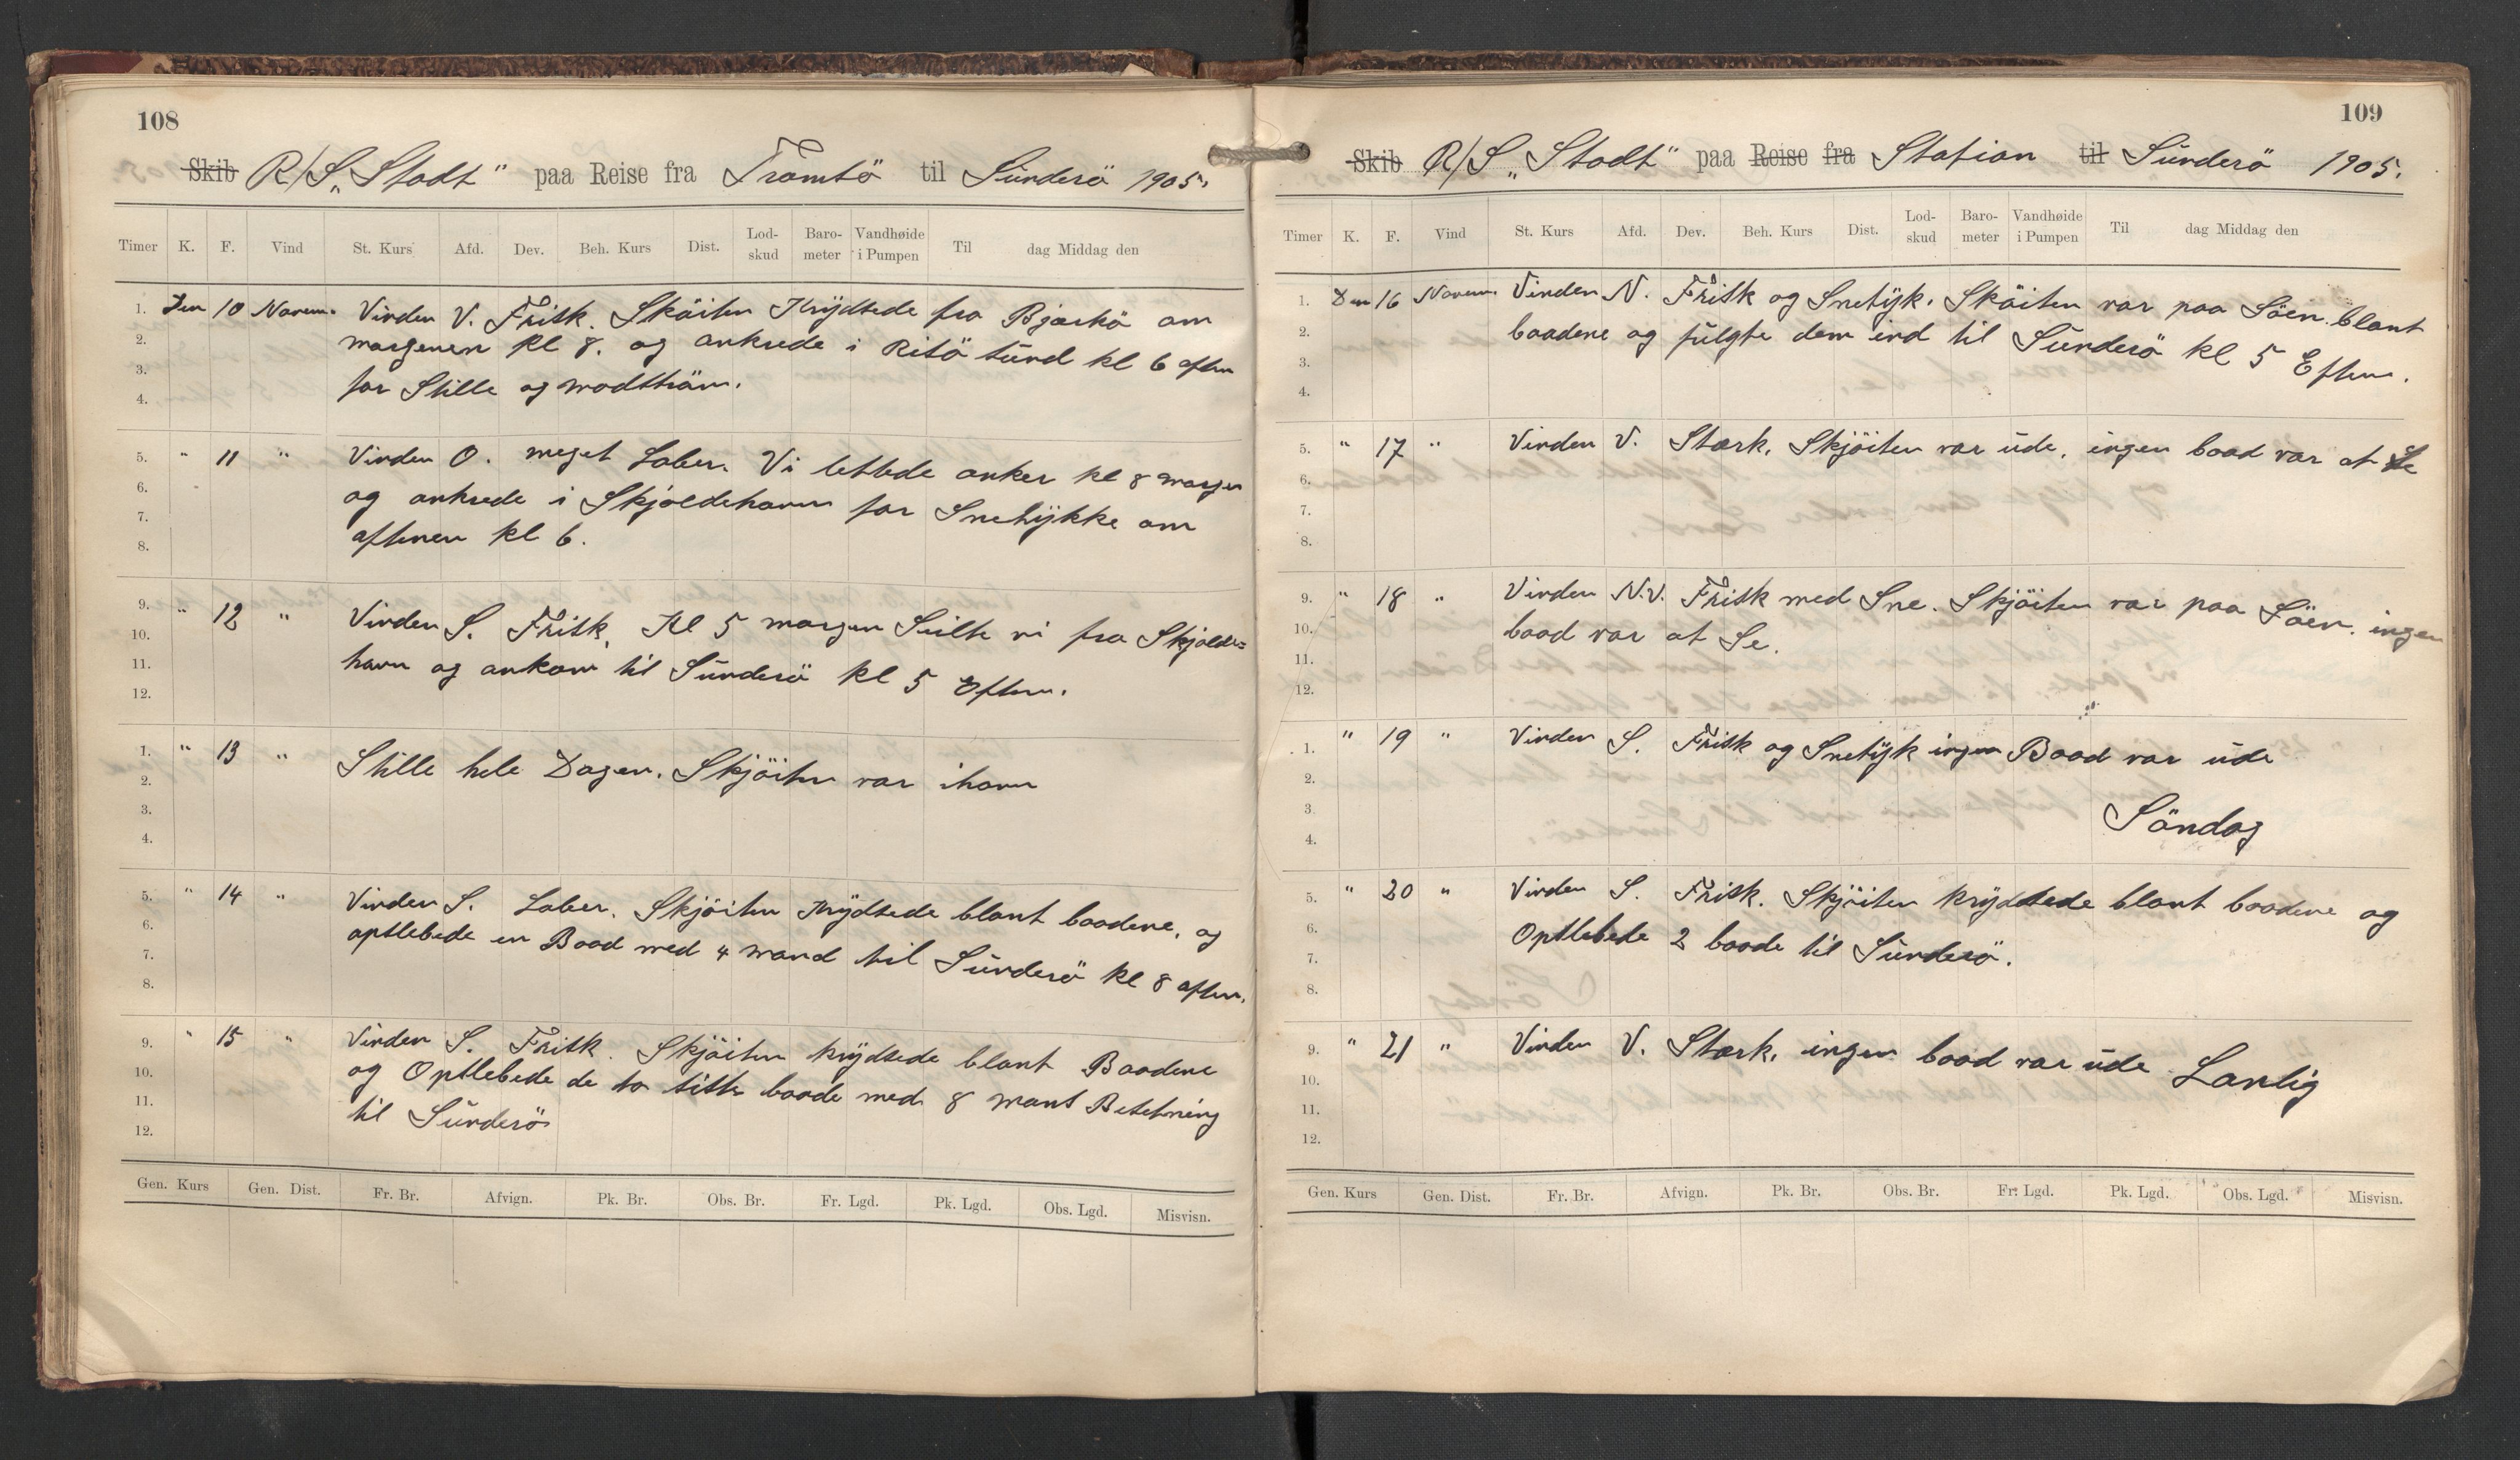 108
Skib R/S „Stadt" paa Reise fra Tromsö til Sünderö 1905.
Timer K. F. Vind St. Kurs Afd. Dev. Beh. Kurs Dist. Lod-skud Baro-meter Vandhøide i Pumpen Til dag Middag den
1. Den 10 Novem. Vinden V. Frisk. Sköiten Krÿdsede fra Bjarkö om
2. morgenen kl 8. og ankrede i Risö sünd kl 6 aften
3. for Stille og modström.
4.
5. " 11 " Vinden O. meget Laber. Vi lettede anker kl 8 morgen
6. og ankrede i Skjoldehavn for Snetÿkke om
7. aftenen kl 6.
8.
9. " 12 " Vinden S. Frisk, Kl 5 morgen Seilte vi fra Skjolde=
10. havn og ankom til Sünderö kl 5 Eftem.
11.
12.
1. " 13 " Stille hele Dagen. Skjöiten var ihavn
2.
3.
4.
5. " 14 " Vinden S. Laber. Skjöiten Krÿdsede blant baadene, og
6. opslebede en Baad med 4 mand til Sünderö kl 8 aften.
7.
8.
9. " 15 " Vinden S. Frisk. Skjöiten krÿdsede blant Baadene
10. og Opslebede de to siste baade med 8 mans Besetning
11. til Sünderö
12.
Gen. Kurs Gen. Dist. Fr. Br. Afvign. Pk. Br. Obs. Br. Fr. Lgd. Pk. Lgd. Obs. Lgd. Misvisn.
109
Skib R/S „Stadt" paa Reise fra Station til Sünderö 1905.
Timer K. F. Vind St. Kurs Afd. Dev. Beh. Kurs Dist. Lod-skud Baro-meter Vandhøide i Pumpen Til dag Middag den
1. Den 16 Novem. Vinden N. Frisk og Snetÿk. Sköiten var paa Söen blant
2. baadene og fülgte dem ind til Sünderö kl 5 Eftem.
3.
4.
5. " 17 " Vinden V. Stærk, Skjöiten var üde, ingen baad var at Se
6.
7.
8.
9. " 18 " Vinden N.V. Frisk med Sne. Skjöiten var paa Söen. ingen
10. baad var at Se.
11.
12.
1. " 19 " Vinden S. Frisk og Snetÿk ingen Baad var üde
2.
3. Söndag
4.
5. " 20 " Vinden S. Frisk. Skjöiten krÿdsede blant baadene og
6. Opslebede 2 baade til Sünderö.
7.
8.
9. " 21 " Vinden V. Stærk, ingen baad var üde Lanlig
10.
11.
12.
Gen. Kurs Gen. Dist. Fr. Br. Afvign. Pk. Br. Obs. Br. Fr. Lgd. Pk. Lgd. Obs. Lgd. Misvisn.